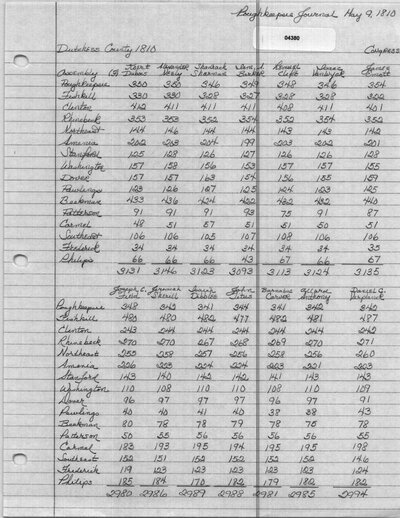 Poughkeepsie Journal May 9, 1810
04380
Dutchess County 1810 Congress
Koert Alexander Shadrack Daniel Isaac James
Assembly (8) Dubois Neely Sherman Clift Emott
Poughkeepsie 350 350 346 349 348 346 354
Fishkill 330 330 328 327 328 328 322
Clinton 412 411 411 411 408 411 401
Rhinebeck 353 353 352 354 352 354 352
Northeast 144 146 144 144 143 143 142
Amenia 202 203 204 199 203 202 201
Stanford 125 128 126 127 126 126 128
Washington 157 158 156 153 157 157 155
Dover 157 157 163 154 156 155 159
Pawlings 123 126 127 125 124 123 125
Beekman 433 436 424 422 432 432 440
Patterson 91 91 91 93 75 91 87
Carmel 48 51 57 51 51 50 51
Southeast 106 106 105 107 108 106 106
Frederick 34 34 34 34 34 34 35
Philips 66 66 66 43 67 66 67
3131 3146 3123 3093 3113 3124 3135
Joseph C. Jeremiah Isaiah John Barnabas Allard Daniel C.
Field Sherill Dibblee Titus Carver Anthony Verplanck
Poughkeepsie 348 342 341 344 341 342 342
Fishkill 480 480 482 477 482 481 487
Clinton 243 244 244 244 244 244 242
Rhinebeck 270 270 267 268 269 270 271
Northeast 255 258 257 256 258 256 260
Amenia 226 223 224 224 223 221 223
Stanford 143 140 142 142 141 143 143
Washington 110 108 110 110 108 110 109
Dover 96 97 97 97 96 97 91
Pawlings 40 40 41 40 38 38 43
Beekman 80 78 78 79 78 75 78
Patterson 50 55 56 56 56 56 55
Carmel 183 193 195 194 195 195 198
Southeast 152 151 152 152 152 152 146
Frederick 119 123 123 123 123 123 124
Philips 185 184 170 182 179 182 182
2980 2986 2989 2988 2981 2985 2994